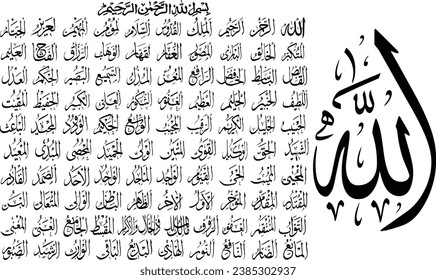 بسم الله الرحمن الرحيم
الله الرحمن الرحيم الملك القدوس السلام المؤمن المهيمن العزيز الجبار
المتكبر الخالق البارئ المصور الغفار القهار الوهاب الرزاق الفتاح العليم
القابض الباسط الخافض الرافع المعز المذل السميع البصير الحكم العدل
اللطيف الخبير الحليم العظيم الغفور الشكور العلي الكبير الحفيظ المقيت
الحسيب الجليل الكريم الرقيب المجيب الواسع الحكيم الودود المجيد الباعث
الشهيد الحق الوكيل القوي المتين الولي الحميد المحصي المبدئ المعيد
المحيي المميت الحي القيوم الواجد الماجد الواحد الاحد الصمد القادر
المقتدر المقدم المؤخر الاول الاخر الظاهر الباطن الوالي المتعالي البر
التواب المنتقم العفو الرؤف مالك الملك ذوالجلال والاكرام المقسط الجامع الغني المغني
المانع الضار النافع النور الهادي البديع الباقي الوارث الرشيد الصبور
الله
shutterstock.com · 2385302937